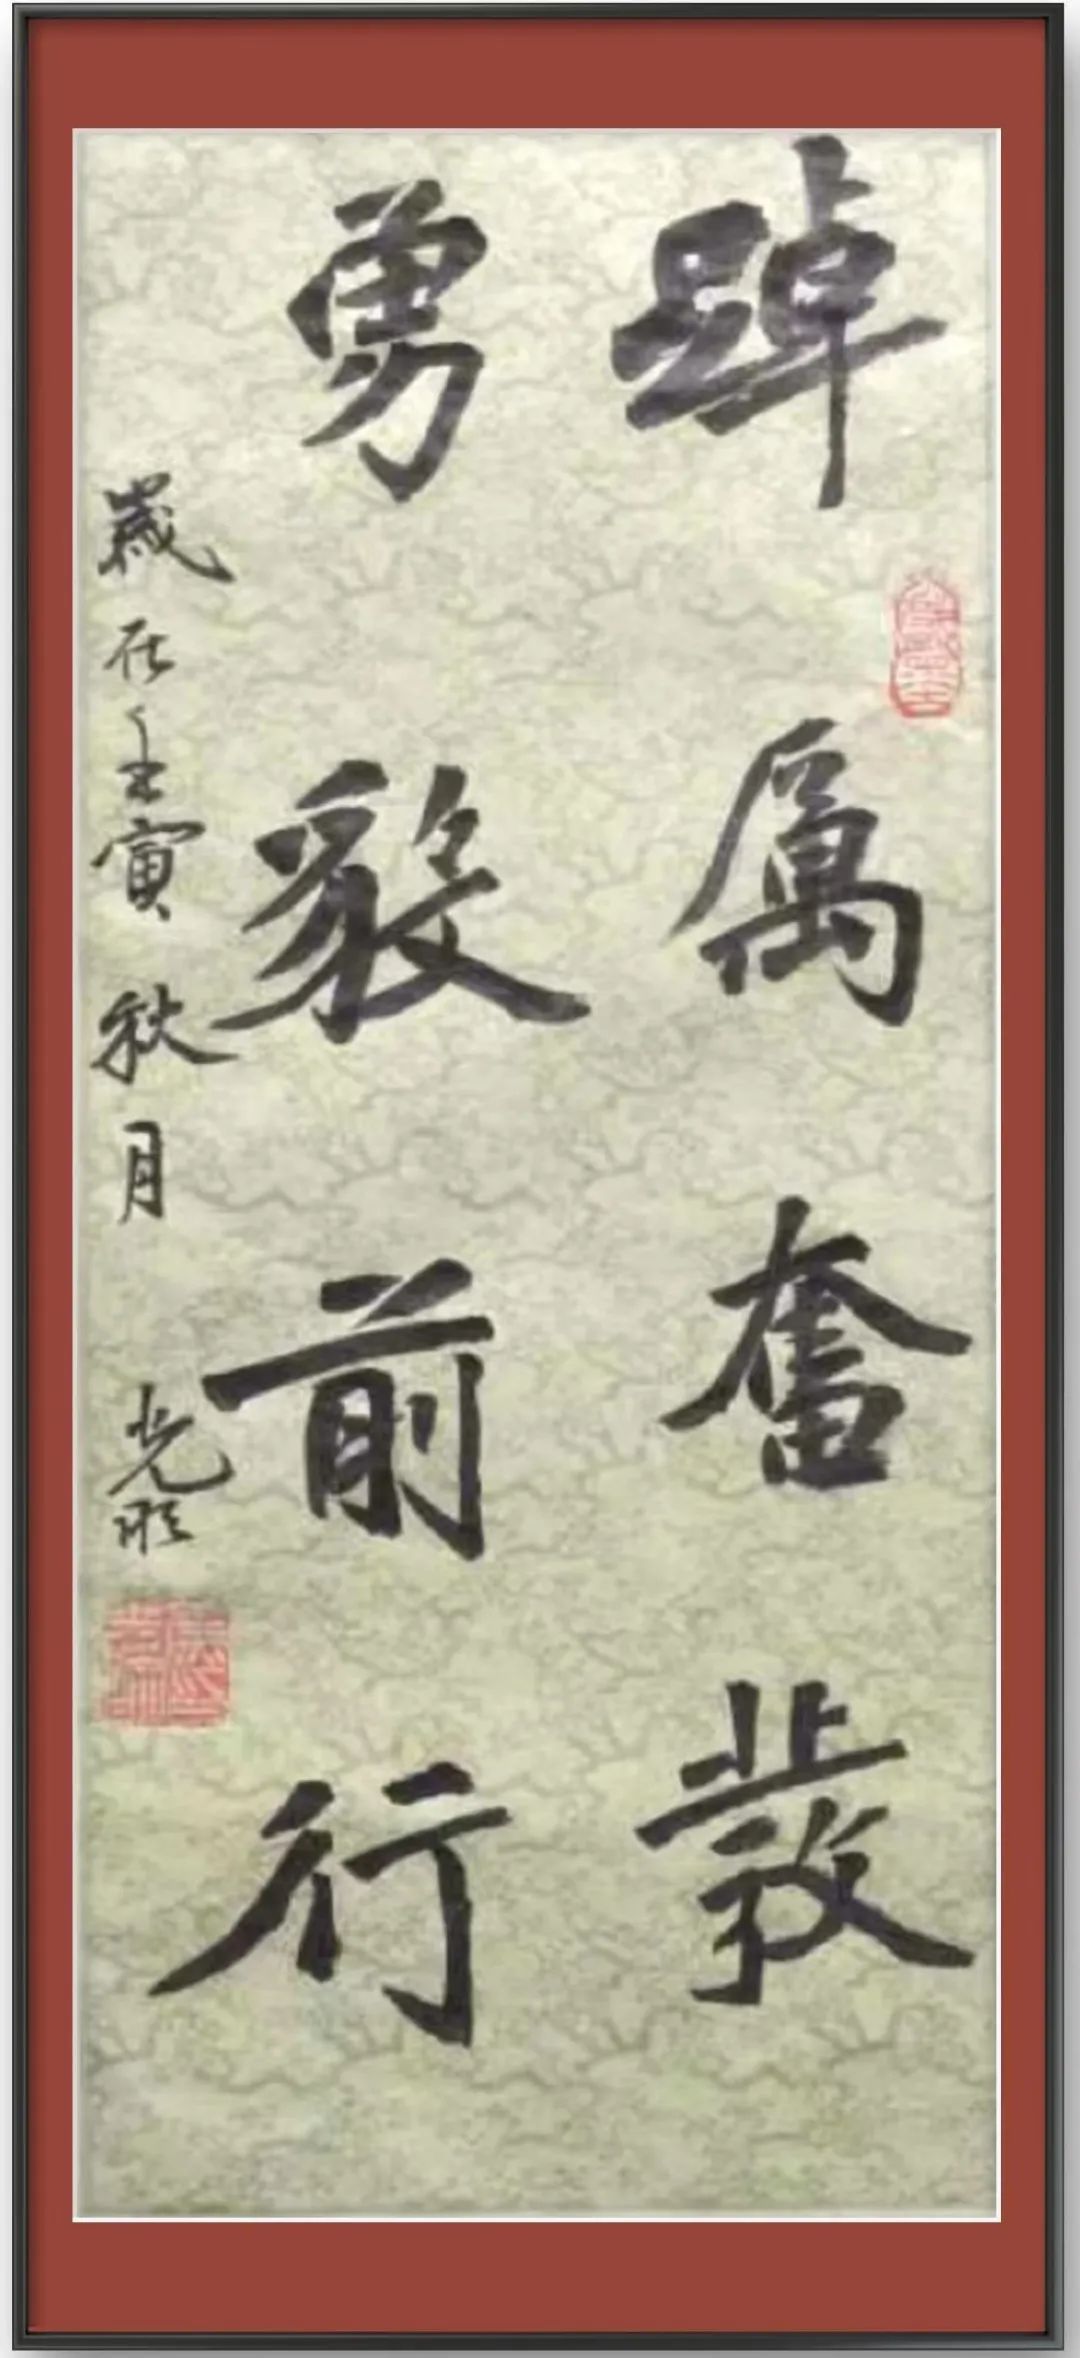 踔厲奮發
勇毅前行
歲在壬寅秋月 光